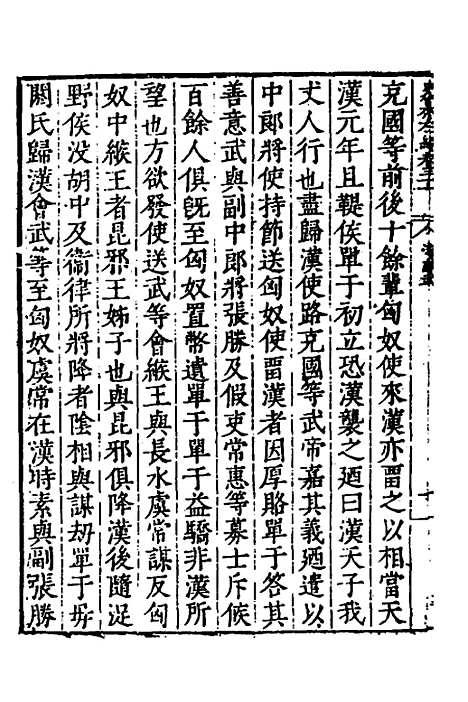 克國等前後十餘輩匈奴使來漢亦畱之以相當天
漢元年且鞮侯單于初立恐漢襲之廼曰漢天子我
丈人行也盡歸漢使路克國等武帝嘉其義廼遣以
中郎將使持節送匈奴使畱漢者因厚賂單于答其
善意武與副中郎將張勝及假吏常惠等募士斥候
百餘人俱旣至匈奴置幣遺單于單于益驕非漢所
望也方欲發使送武等會緱王與長水虞常謀反匈
奴中緱王者昆邪王姊子也與昆邪俱降漢後隨浞
野侯没胡中及衞律所將降者陰相與謀刼單于母
閼氏歸漢會武等至匈奴虞常在漢時素與副張勝